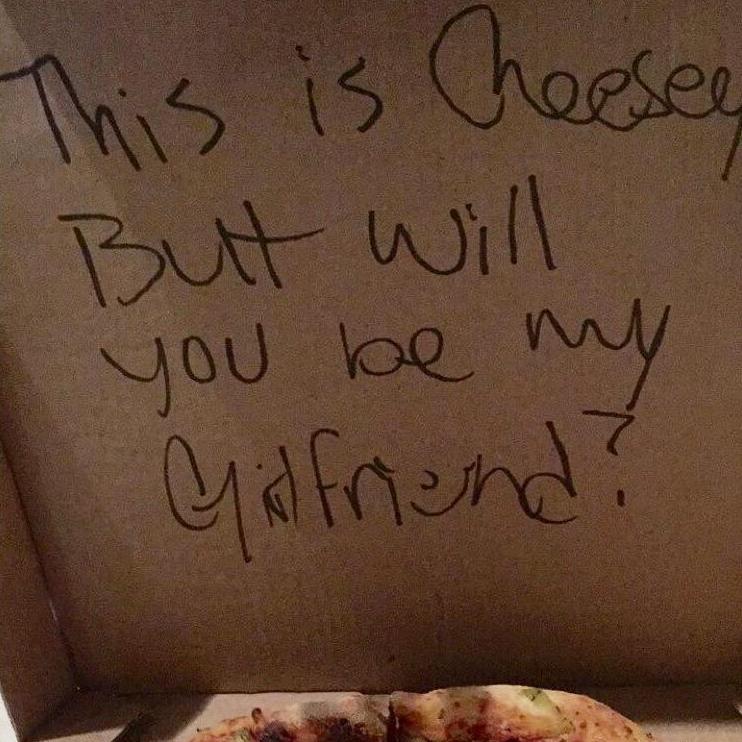 This is Cheesey
Butt will
you be my
Girlfriend?